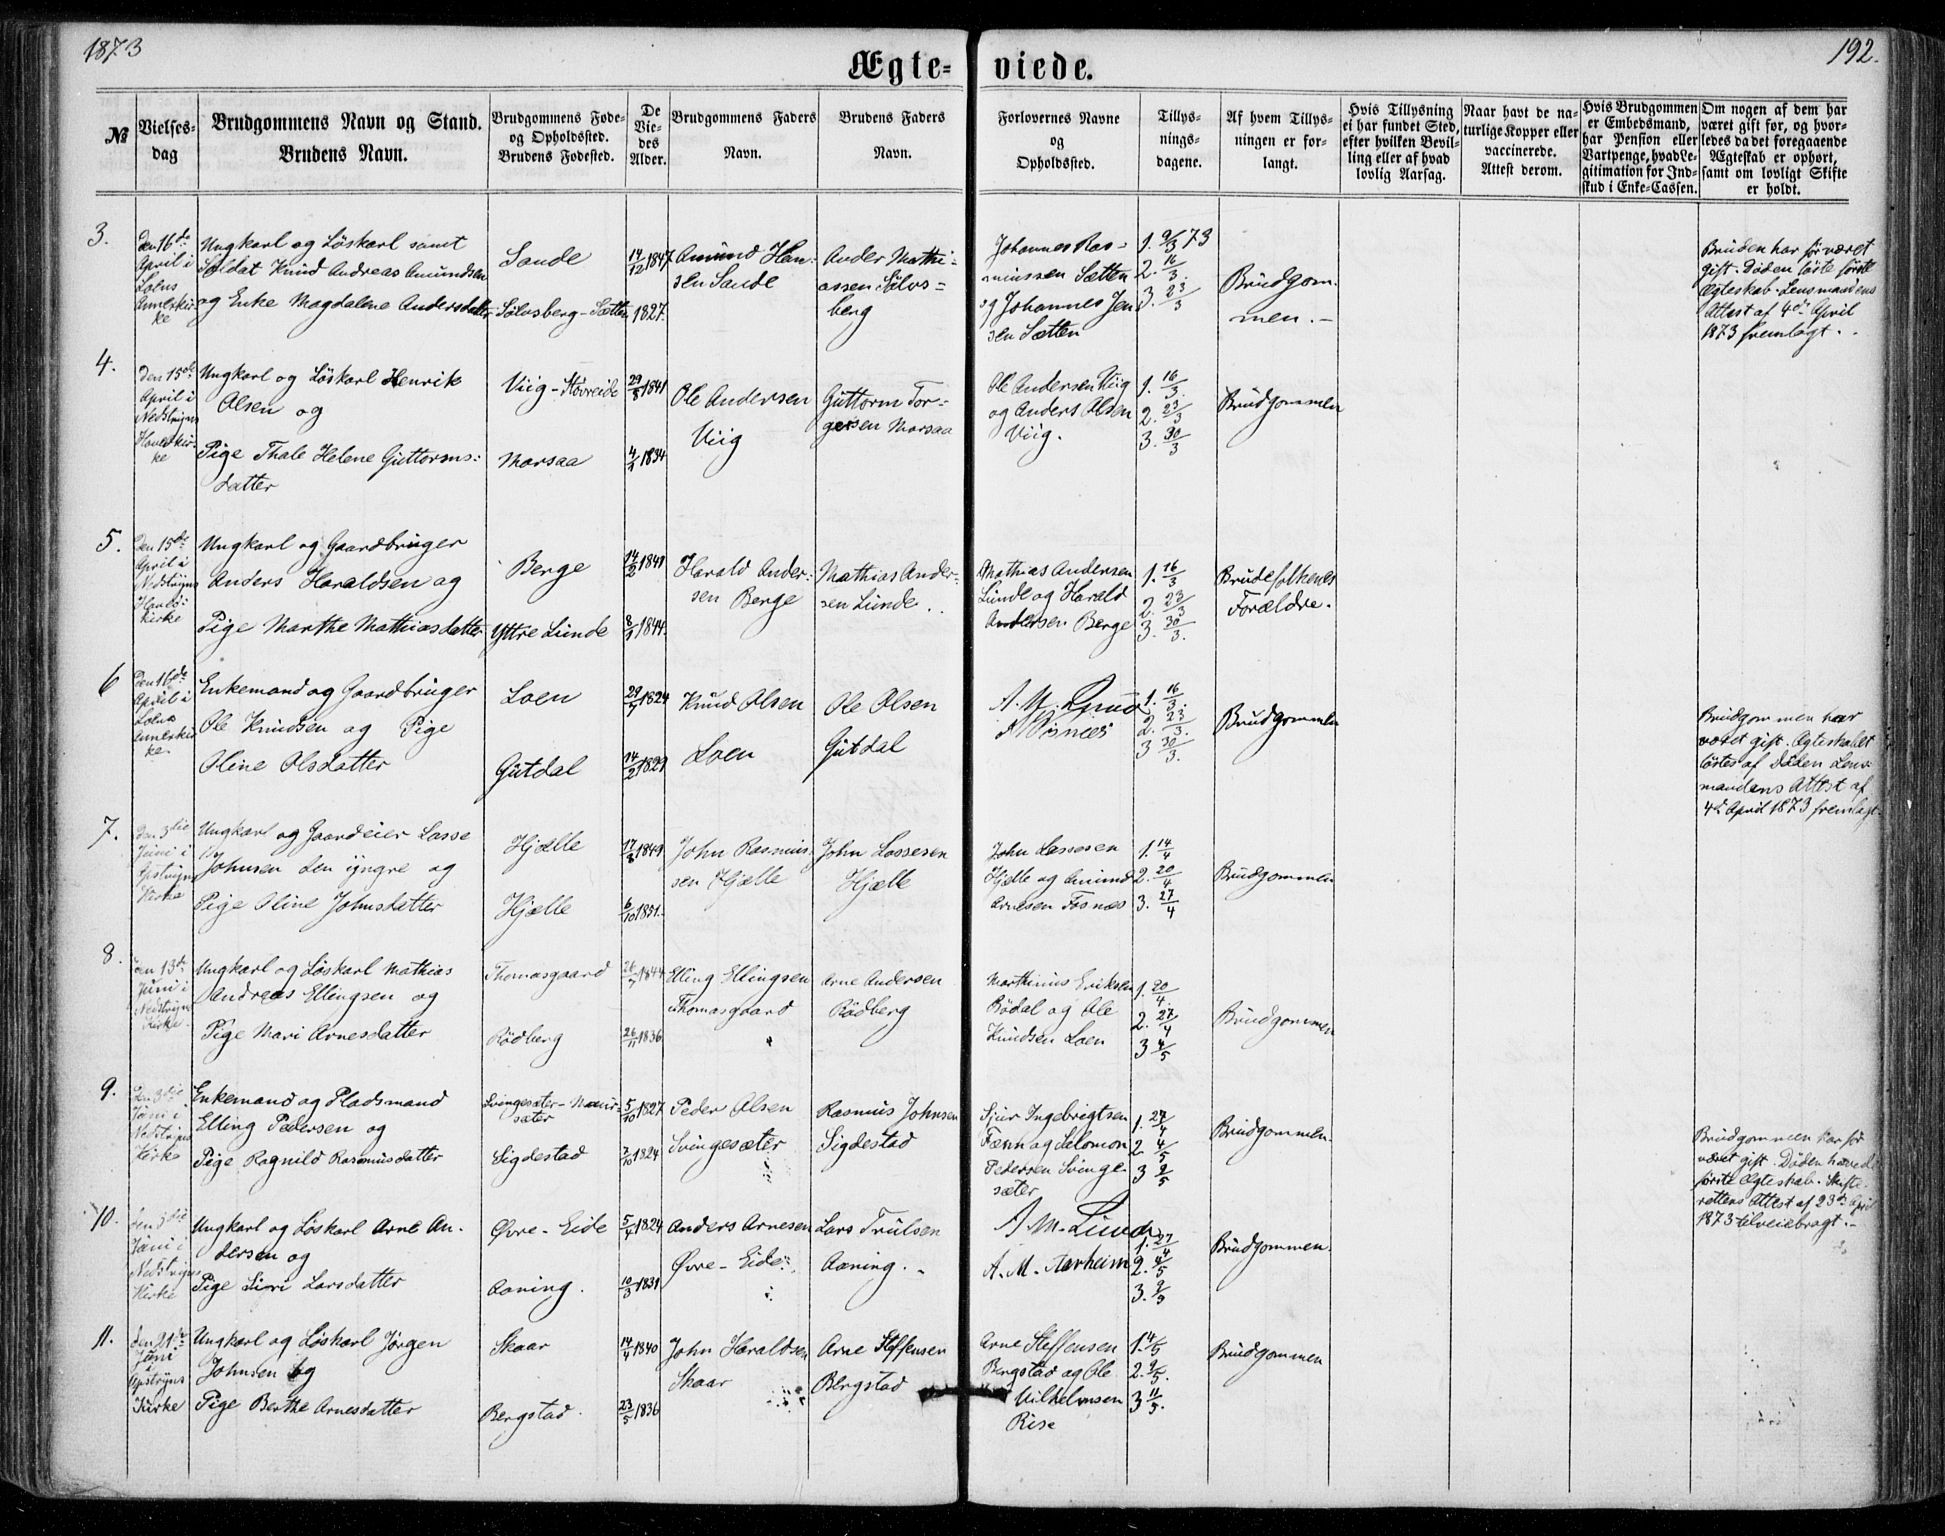 1873
192.
Ægte-viede.
№
Vielses-
dag
Brudgommens Navn og Stand.
Brudens Navn.
Brudgommens Føde-
og Opholdssted.
Brudens Fødested.
De
Vie-
des
Alder.
Brudgommens Faders
Navn.
Brudens Faders
Navn.
Forlovernes Navne
og
Opholdssted.
Tillys-
nings-
dagene.
Af hvem Tillys-
ningen er for-
langt.
Hvis Tillysning
ei har fundet Sted,
efter hvilken Bevil-
ling eller af hvad
lovlig Aarsag.
Naar havt de na-
turlige Kopper eller
vaccinerede.
Attest derom.
Hvis Brudgommen
er Embedsmand,
har Pension eller
Vartpenge, hvad Le-
gitimation for Ind-
skud i Enke-Cassen.
Om nogen af dem har
været gift før, og hvor-
ledes da det foregaaende
Ægteskab er ophørt,
samt om lovligt Skifte
er holdt.
3.
den 16de
April i
Loens
Annexkir-
ke
Ungkarl og Løskarl samt
Soldat Knud Andreas Amundsen
og Enke Magdalene Andersdatter
Sande
Sølvsberg-Sætten
14/12 1847
1827.
Amund Han-
sen Sande
Ander Mathi-
assen Sølvs-
berg
Johannes Ras-
mussen Sætten
og Johannes Jen
sen Sætten
1. 9/3 73
2. 16/3.
3. 23/3
Brudgom-
men.-
Bruden har før været
gift. Døden løste første
Ægteskab. Lensmandens
Attest af 4de April
1873 fremlagt.
4.
den 15de
April i
Nedstryns
Hovedkir-
ke
Ungkarl og Løskarl Henrik
Olsen og
Pige Thale Helene Guttorms-
datter
Viig-Støvreide
Marsaa
29/8 1841
1834
Ole Andersen
Viig
Guttorm Tor-
gersen Marsaa
Ole Andersen Viig
og Anders Olsen
Viig.
1. 16/3.
2. 23/3
3. 30/3
Brudgommen
5.
den 15de
April i
Nedstryns
Hoved-
kirke
Ungkarl og Gaardbruger
Anders Haraldsen og
Pige Marthe Mathiasdatter
Berge
Yttre Lunde
14/2 1841
1844.
Harald Ander-
sen Berge
Mathias Ander-
sen Lunde.
Mathias Andersen
Lunde og Harald
Andersen Berge
1. 16/3
2. 23/3
3. 30/3.
Brudefolkenes
Forældre.
6
den 16de
April i
Loens
Annexkir
ke
Enkemand og Gaardbruger
Ole Knudsen og Pige
Oline Olsdatter
Loen
Gutdal
1824
14/2 1829
Knud Olsen
Loen
Ole Olsen
Gutdal
A. M.
1. 16/3.
2. 23/3.
3 30/3.
Brudgommen
Brudgommen har
været gift. Ægteskabet
løstes af Døden Lens-
mandens Attest af
4de April 1873 fremlagt.
7.
den 3die
Juni i
Opstryns
Kirke
Ungkarl og Gaardeier Lasse
Johnsen den yngre og
Pige Oline Johnsdatter
Hjelle
Hjelle
17/8 1849
6/10 1851.
John Rasmus
sen Hjelle
John Lassesen
Hjelle
John Lassesen
Hjelle og Amund
Arnesen Fosnæs
1. 14/4
2. 20/4
3. 27/4
Brudgommen
8.
den 13de
Juni i
Nedstryns
Kirke.
Ungkarl og Løskarl Mathias
Andreas Ellingsen og
Pige Mari Arnesdatter
Thomasgaard
Rødberg
1844
26/11 1836
Elling Ellingsen
Thomasgaard
Arne Andersen
Rødberg
Marthinus Eriksen
Bødal og Ole
Knudsen Loen
1. 20/4.
2. 27/4
3 4/5
Brudgommen
9.
den 3die
Juni i
Nedstryns
Kirke
Enkemand og Pladsmand
Elling Pedersen og
Pige Ragnild Rasmusdatter
Svingesæter-
sæter
Sigdestad
5/10 1827
7/10 1824
Peder Olsen
Svingesæter
Rasmus Johnsen
Sigdestad
Sjur Ingebrigtsen
Fænn og Salomon
Pedersen Svinge
sæter
1. 27/4
2 4/5
3 9/5
Brudgommen.
Brudgommen har før
været gift. Døden hævede
første Ægteskab. Skifte-
rettens Attest af 23de April
1873 tilveiebragt.-
10.
den 3die
Juni i
Nedstryns
Kirke
Ungkarl og Løskarl Arne An-
dersen og
Pige Siri Larsdatter
Øvre-Eide
Aaning.
5/4 1824
10/3 1831
Anders Arnesen
Øvre-Eide
Lars Trulsen
Aaning.-
A. M. Lunde
A. M. Aarheim
1. 27/4
2. 4/5
3. 9/5
Brudgommen.
11.
den 21de
Juni
i
Opstryns
Kirke
Ungkarl og Løskarl Jørgen
Johnsen og
Pige Berthe Arnesdatter
Skaar
Bergstad.
14/4 1840
23/5 1836
John Haraldsen
Skaar
Arne Steffensen
Bergstad
Arne Steffensen
Bergstad og Ole
Vilhelmsen
Rise
1. 4/5
2. 9/5.
3 11/5.
Brudgommen